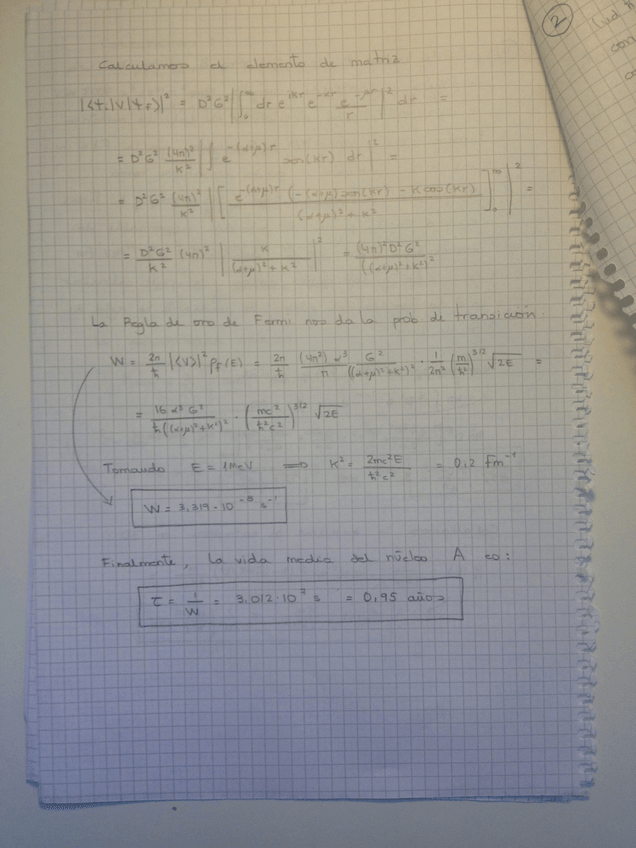 ②
Calculamos el elemento de matriz
|<ψᵢ|V|ψ_F>|² = D²G² |∫₀^∞ dr e^{ikr} e^{-αr} e^{-μr}/r|² dr =
= D²G² (4π)²/K² |∫ e^{-(α+μ)r} sen(Kr) dr|² =
= D²G² (4π)²/K² |[e^{-(α+μ)r} (-(α+μ)sen(Kr) - K cos(Kr))/((α+μ)²+K²)]₀^∞|² =
= D²G²/K² (4π)² |K/((α+μ)²+K²)|² = (4π)²D²G²/((α+μ)²+K²)²
La Regla de oro de Fermi nos da la prob de transición:
W = 2π/ħ |<V>|² ρ_f(E) = 2π/ħ (4π²)α³/π G²/((α+μ)²+K²)² · 1/2π² (m/ħ²)^{3/2} √2E =
= 16α³G²/ħ((α+μ)²+K²)² · (mc²/ħ²c²)^{3/2} √2E
Tomando E = 1MeV ⟹ K² = 2mc²E/ħ²c² = 0,2 fm⁻¹
W = 3,319·10⁻⁸ s⁻¹
Finalmente, la vida media del núcleo A es:
τ = 1/W = 3,012·10⁷ s = 0,95 años